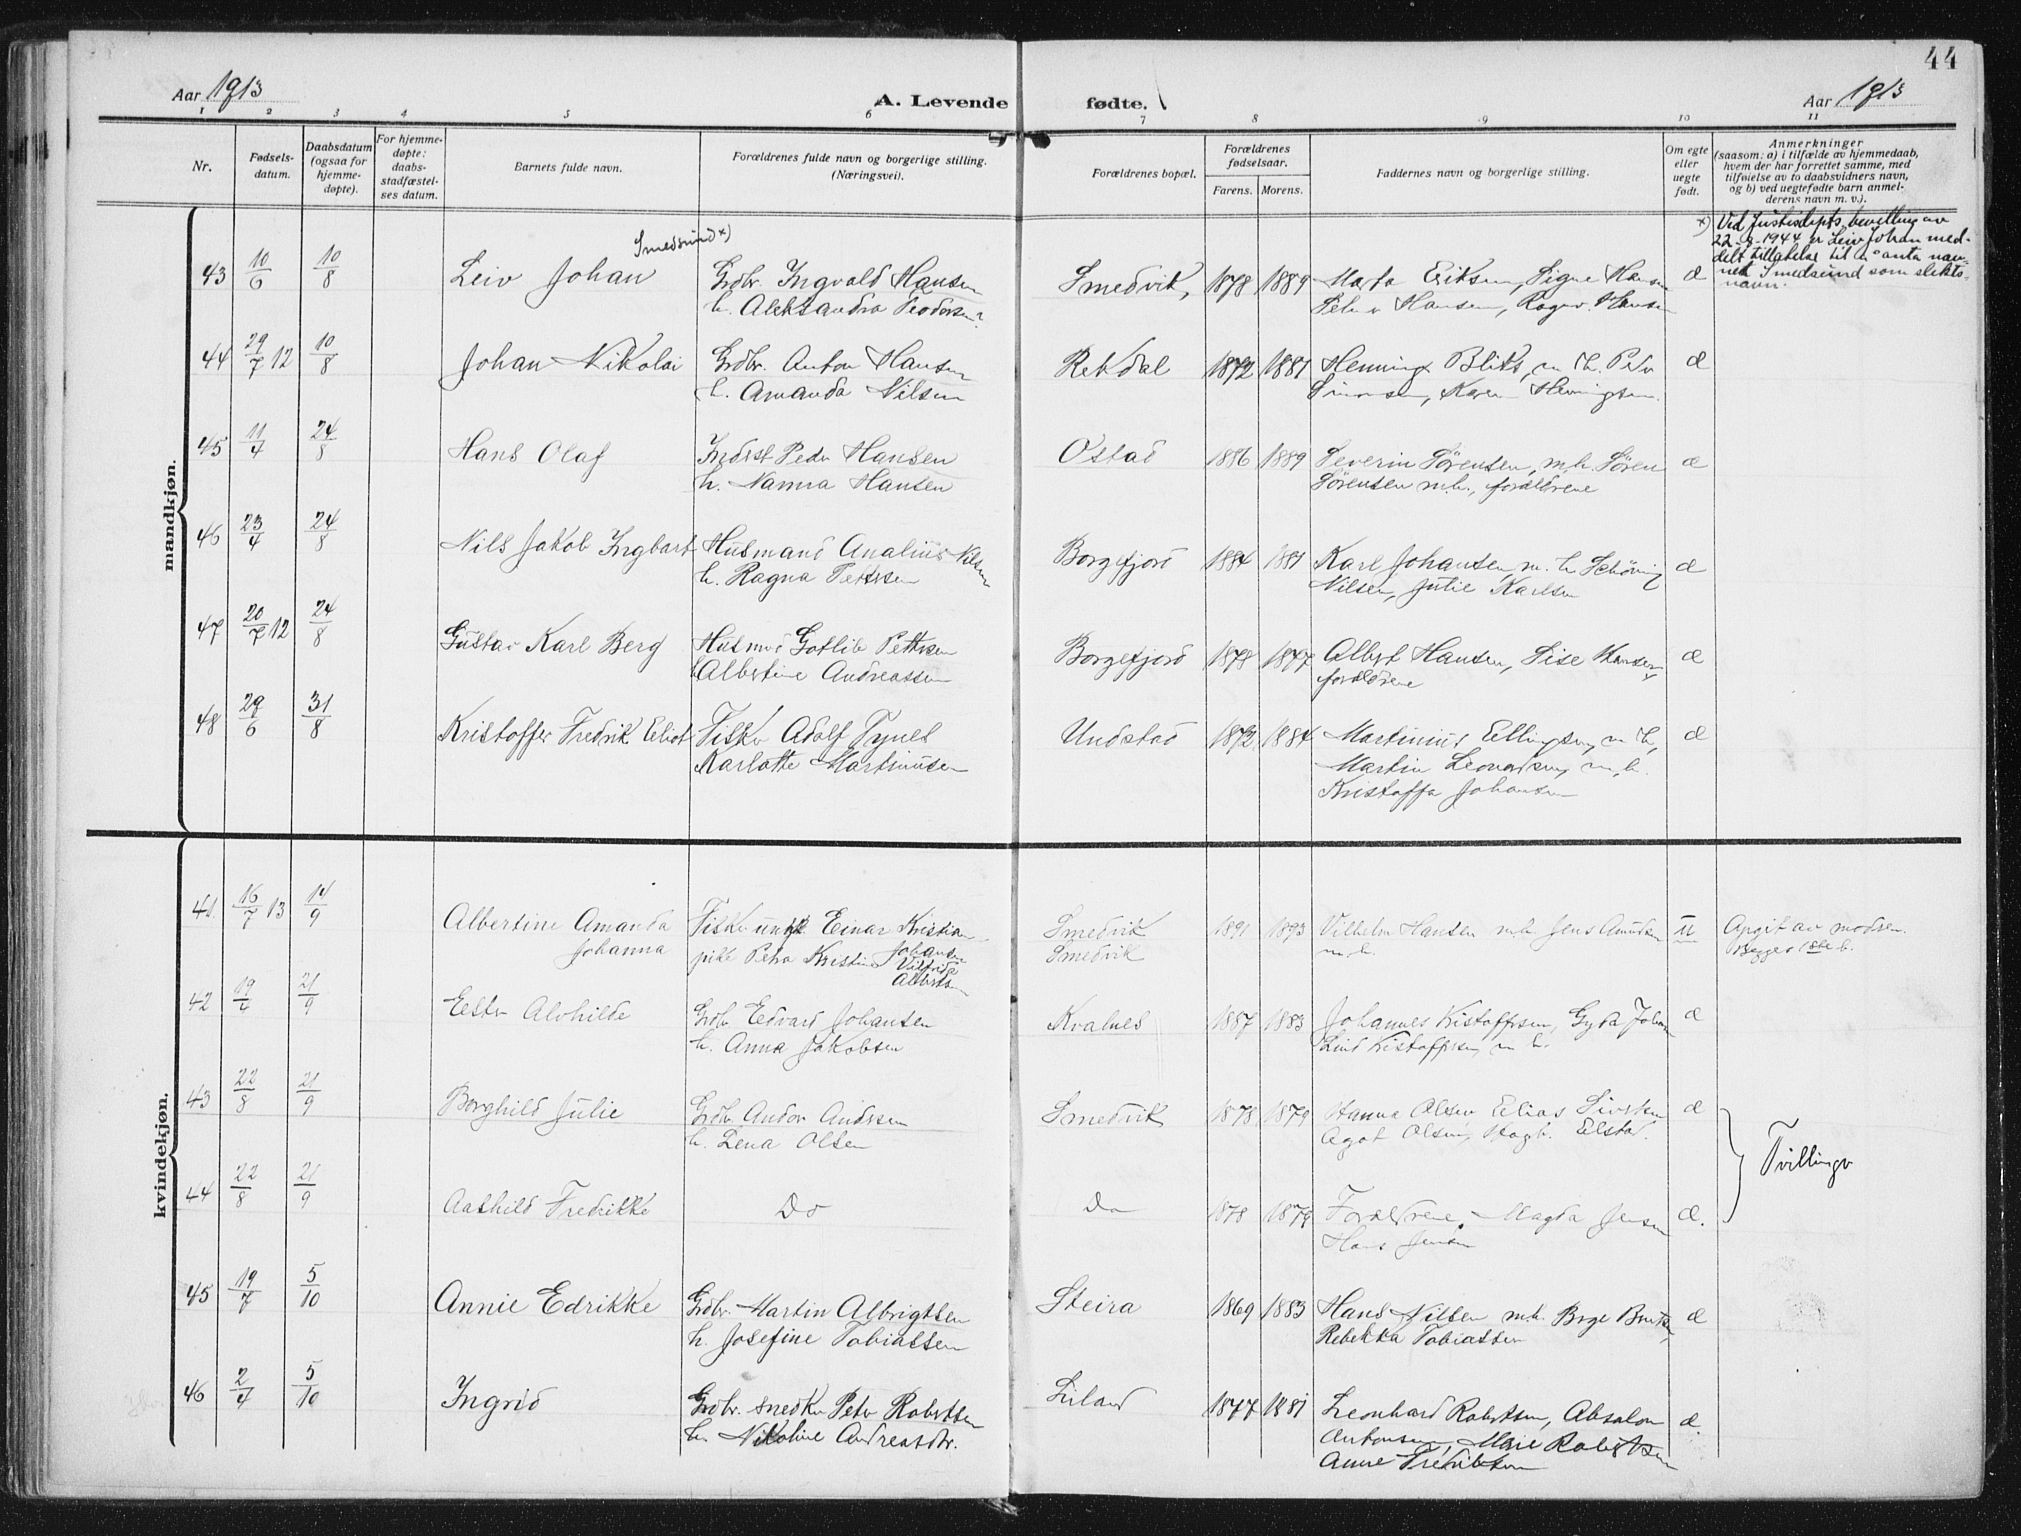 44
Aar 1913
A. Levende fødte.
Aar 1913
1 2 3 4 5 6 7 8 9 10 11
Nr.
Fødsels-
datum.
Daabsdatum
(ogsaa for
hjemme-
døpte).
For hjemme-
døpte:
daabs-
stadfæstel-
ses datum.
Barnets fulde navn.
Forældrenes fulde navn og borgerlige stilling.
(Næringsvei).
Forældrenes bopæl.
Forældrenes
fødselsaar.
Farens. Morens.
Faddernes navn og borgerlige stilling.
Om egte
eller
uegte
født.
Anmerkninger
(saasom: a) i tilfælde av hjemmedaab,
hvem der har forrettet samme, med
tilføielse av to daabsvidners navn,
og b) ved uegtefødte barn anmel-
derens navn m. v.).
mandkjøn.
43 10/6 10/8 Leiv Johan Smedsund x)
Grdbr. Ingvald Hansen
h. Aleksandra Teodorsen
Smedvik, 1878 1889
Marta Eriksen, Signe Hansen
Peder Hansen, Ragnv. Hansen
æ
x) Ved Justisdepts. bevilling av
22-9-1944 er Leiv Johan med-
delt tillatelse til å anta nav-
net Smedsund som slekts-
navn.
44 29/7 12 10/8 Johan Nikolai
Grdbr. Anton Hansen
h. Amanda Nilsen
Rekdal 1872 1881
Henning Bliks, m. h. Peder
Simonsen, Karen Henningsen.
æ
45 11/4 24/8 Hans Olaf
Inderst Peder Hansen
h. Nanna Hansen
Ostad 1886 1889
Severin Sörensen, m.h. Sören
Sörensen m.h., forældrene
æ
46 23/4 24/8 Nils Jakob Ingbart
Husmand Analius Nilsen
h. Ragna Pettersen
Borgefjord 1884 1881
Karl Johansen, m. h. Schöning
Nilsen, Julie Karlsen
æ
47 20/7 12 24/8 Gustav Karl Berg
Husmd Gotlib Pettersen
h Albertine Andreassen
Borgefjord 1878 1877
Albert Hansen, Sise Hansen,
forældrene
æ
48 29/6 31/8 Kristoffer Fredrik Eliot
Fisker Adolf Tynes
Karlotte Martinusen
Undstad 1872 1884
Martinius Ellingsen, m h,
Martin Leonardsen, m. h.
Kristoffa Johansen
æ
kvindekjøn.
41. 16/7 13 14/9 Albertine Amanda
Johanna
Fisker ungk. Einar Kristian Johansen
pike Petra Kristine Vilfrida
Albertsen
Smedvik
Smedvik
1891 1893
Vilhelm Hansen m.h. Jens Amundsen
m. h.
u
Opgit av modren.
Begges 1ste b.
42 19/4 21/9 Ester Alvhilde
Grdb. Edvard Johansen
h. Anna Jakobsen
Kvalnes 1887 1883
Johannes Kristoffersen, Gyda Johan
Lind Kristoffersen, m h.
æ
43 22/8 21/9 Borghild Julie
Grdb. Andor Andersen
h. Lena Olsen
Smedvik 1878 1879
Hanna Olsen Elias Sivertsen
Agot Olsen, Hagb. Elstad.
æ
Tvillinger
44 22/8 21/9 Aashild Fredrikke
Do
Do
1878 1879
Forældrene, Magda Jensen
Hans Jensen
æ.
45 19/7 5/10 Annie Edrikke
Grdbr. Martin Albrigtsen
h. Josefine Tobiassen
Steira 1869 1883
Hans Nilsen m.h. Borge Berntsen,
Rebekka Tobiassen
æ
46 2/4 5/10 Ingrid
Grdbr. snedker Peter Robertsen
h. Nikoline Andreasdtr.
Liland 1877 1881
Leonhard Robertsen, Absalon
Antonsen, Marie Robertsen
Anne Fredriksen
æ.